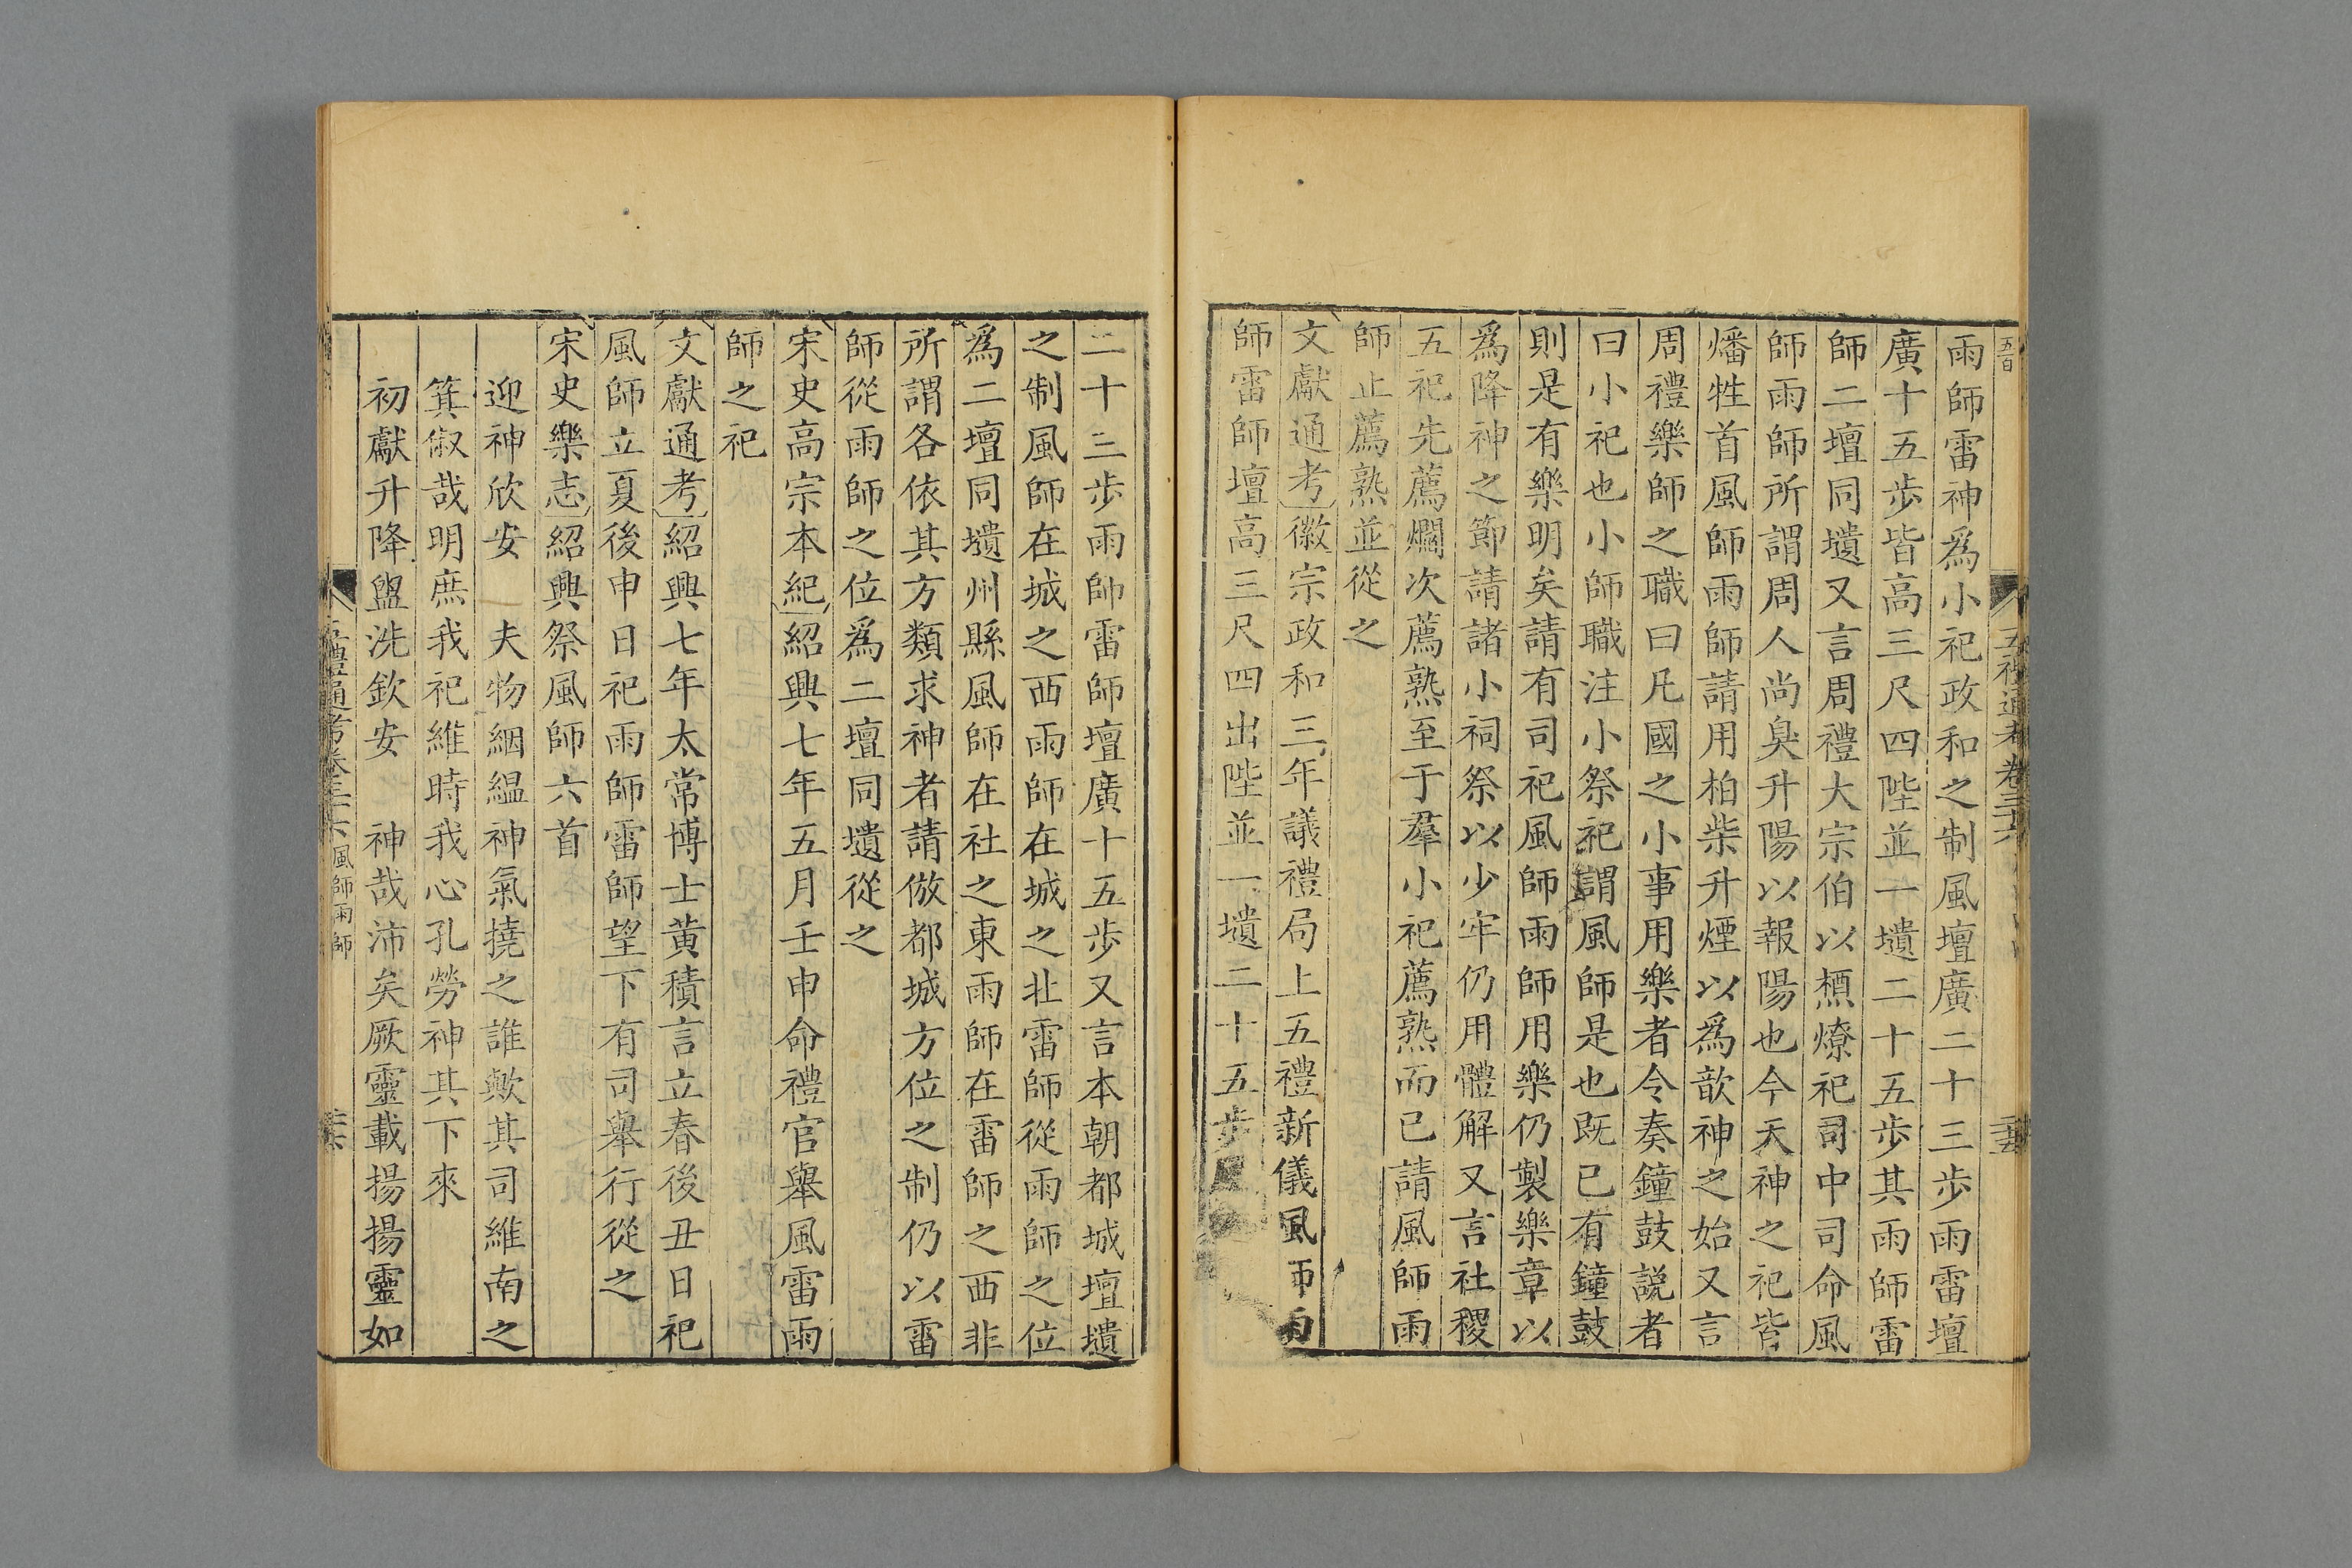 五百
五禮通考卷三十六
雨師雷神爲小祀政和之制風壇廣二十三步雨雷壇
廣十五步皆高三尺四陛並一壝二十五步其雨師雷
師二壇同壝又言周禮大宗伯以槱燎祀司中司命風
師雨師所謂周人尚臭升陽以報陽也今天神之祀皆
燔牲首風師雨師請用柏柴升煙以爲歆神之始又言
周禮樂師之職曰凡國之小事用樂者令奏鐘鼓説者
曰小祀也小師職注小祭祀謂風師是也既已有鐘鼓
則是有樂明矣請有司祀風師雨師用樂仍製樂章以
爲降神之節請諸小祠祭以少牢仍用體解又言社稷
五祀先薦爓次薦熟至于羣小祀薦熟而已請風師雨
師止薦熟並從之
文獻通考徽宗政和三年議禮局上五禮新儀風師雨
師雷師壇高三尺四出陛並一壝二十五步
二十三步雨帥雷師壇廣十五步又言本朝都城壇壝
之制風師在城之西雨師在城之北雷師從雨師之位
爲二壇同壝州縣風師在社之東雨師在雷師之西非
所謂各依其方類求神者請倣都城方位之制仍以雷
師從雨師之位爲二壇同壝從之
宋史高宗本紀紹興七年五月壬申命禮官舉風雷雨
師之祀
文獻通考紹興七年太常博士黄積言立春後丑日祀
風師立夏後申日祀雨師雷師望下有司舉行從之
宋史樂志紹興祭風師六首
迎神欣安　夫物絪緼神氣撓之誰歟其司維南之
箕俶哉明庶我祀維時我心孔勞神其下來
初獻升降盥洗欽安　神哉沛矣厥靈載揚揚靈如
五禮通考卷三十六風師雨師